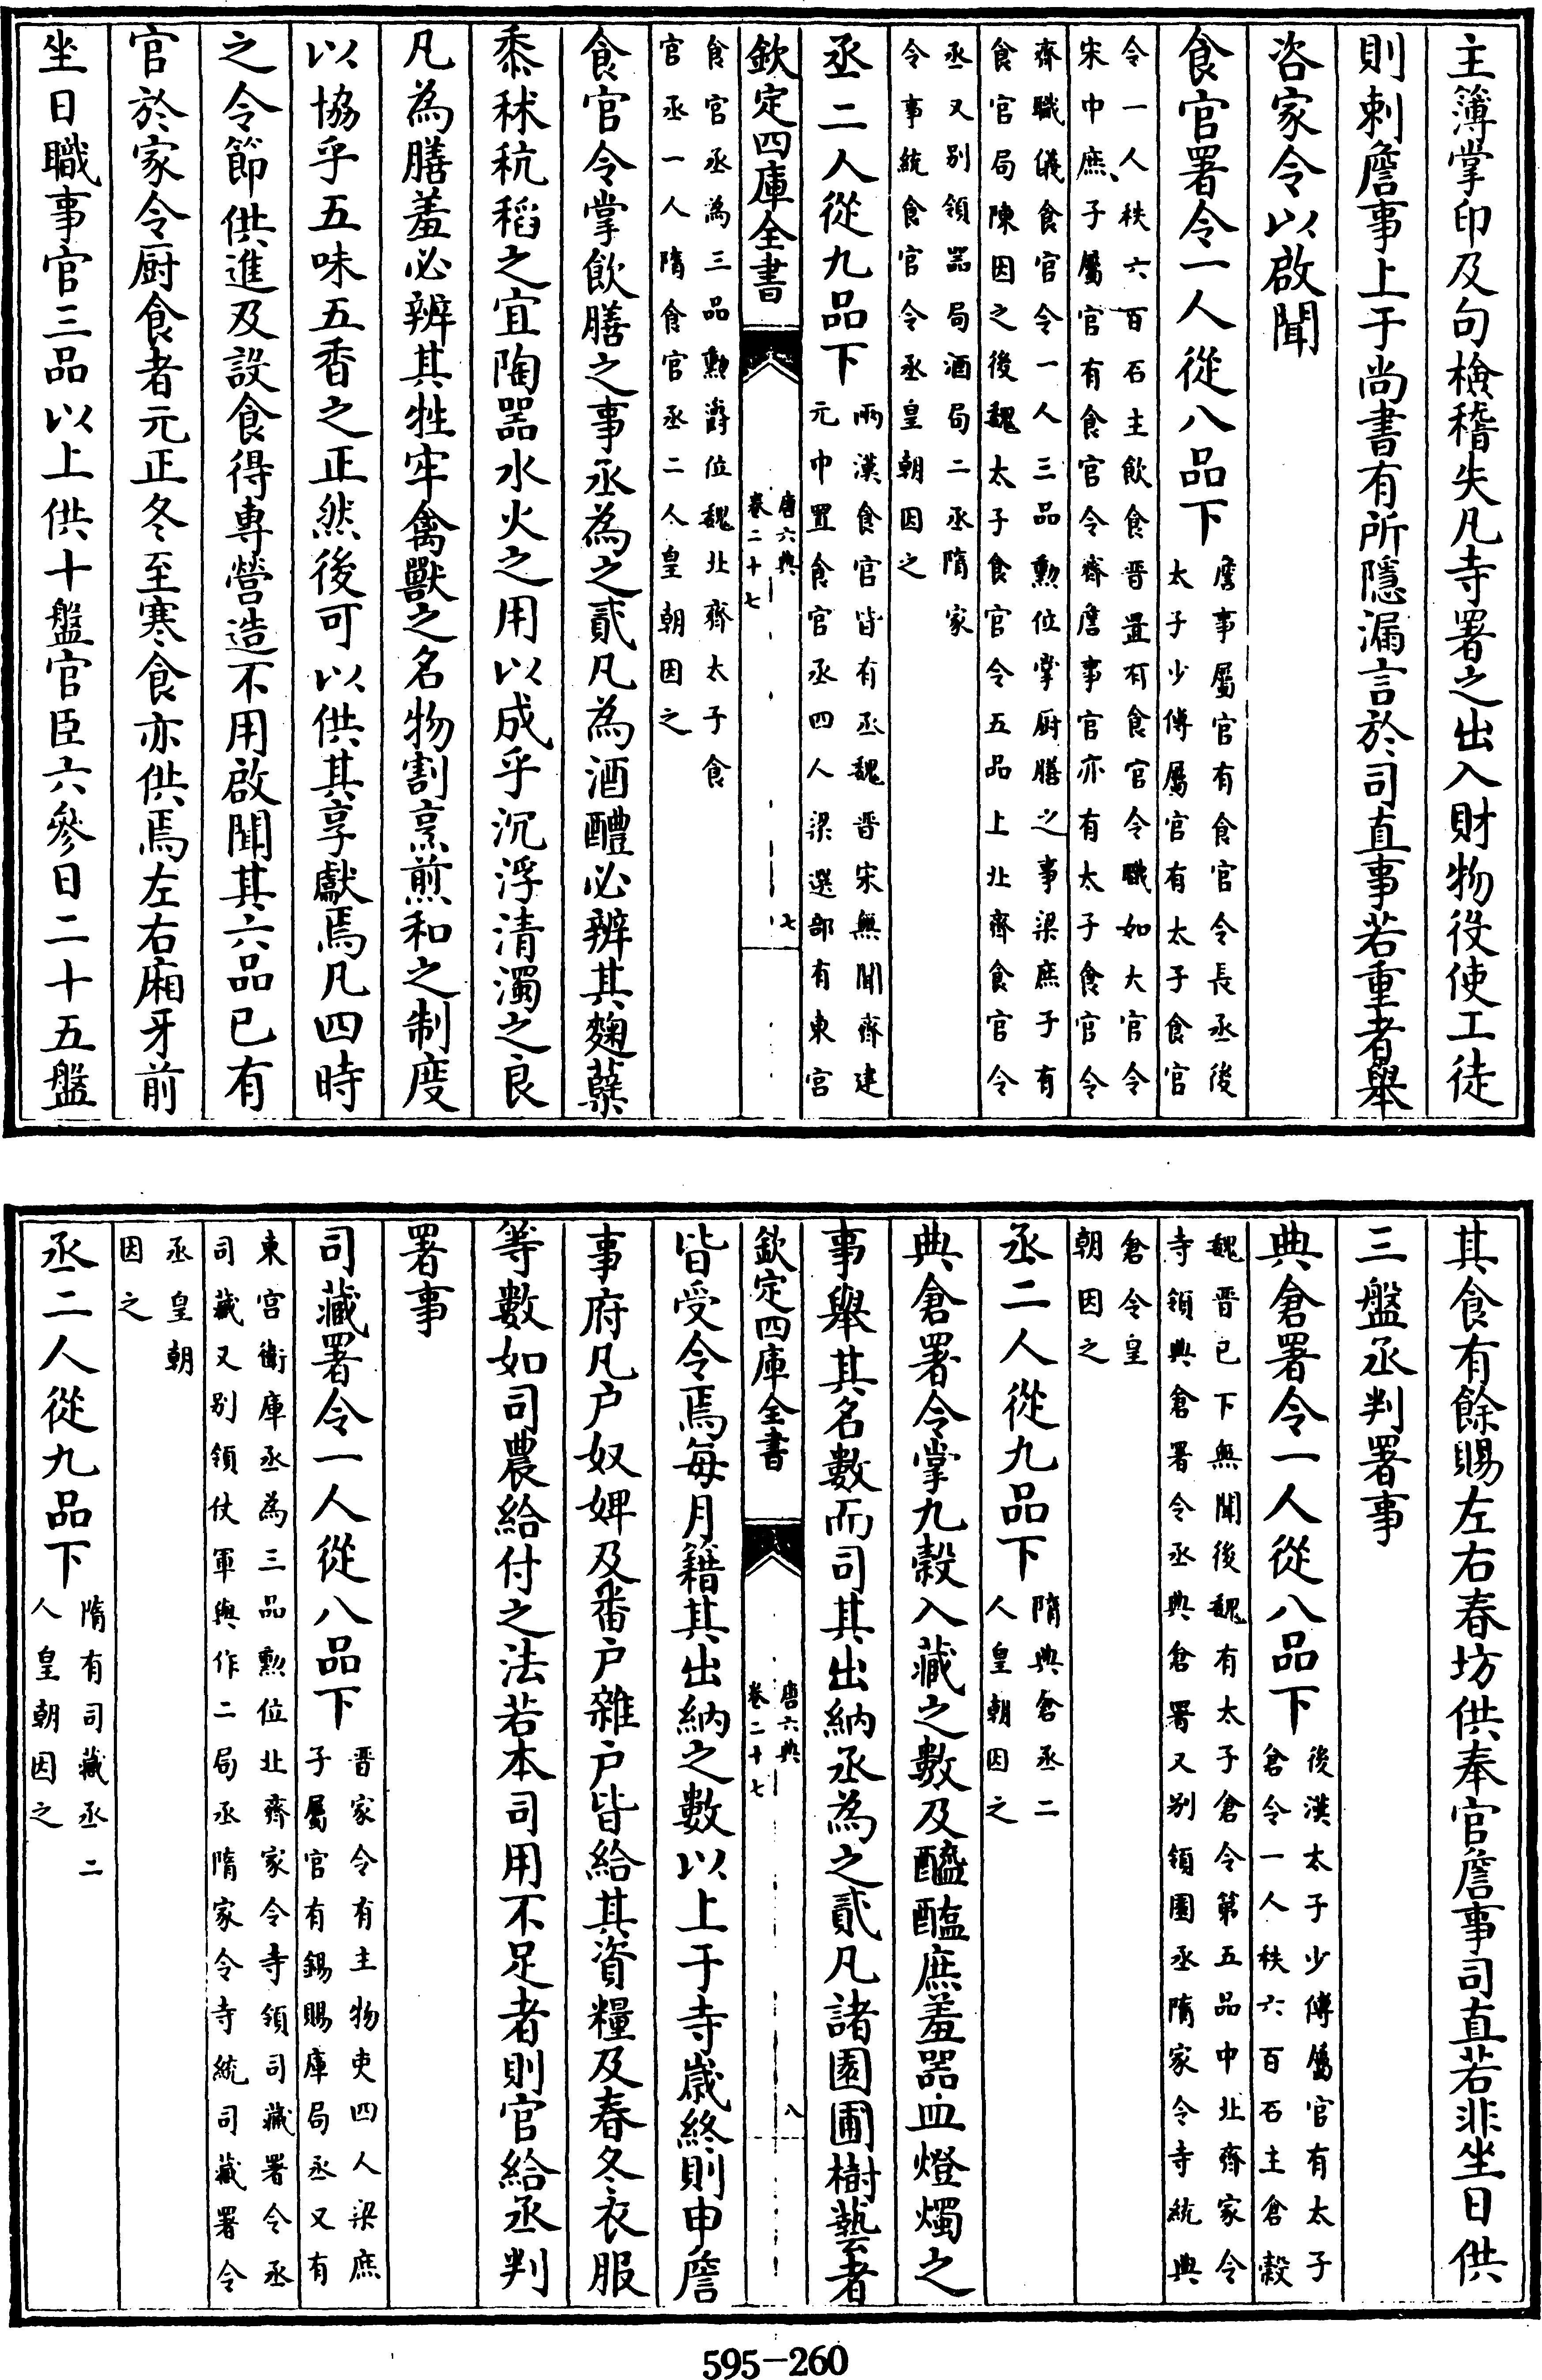 主簿掌印及句檢稽失凡寺署之出入財物役使工徒
則刺詹事上于尚書有所隱漏言於司直事若重者舉
咨家令以啟聞
食官署令一人從八品下
詹事屬官有食官令長丞後
太子少傅屬官有太子食官
令一人秩六百石主飲食晉置有食官令職如大官令
宋中庶子屬官有食官令齊詹事官亦有太子食官令
齊職儀食官令一人三品勲位掌厨膳之事梁庶子有
食官局陳因之後魏太子食官令五品上北齊食官令
丞又别領器局酒局二丞隋家
令事統食官令丞皇朝因之
丞二人從九品下
兩漢食官皆有丞魏晋宋無聞齊建
元中置食官丞四人梁選部有東宮
欽定四庫全書
唐六典
卷二十七
七
食官丞為三品勲爵位魏北齊太子食
官丞一人隋食官丞二人皇朝因之
食官令掌飲膳之事丞為之貳凡為酒醴必辨其麴糵
黍秫秔稻之宜陶器水火之用以成乎沉浮清濁之良
凡為膳羞必辨其牲牢禽獸之名物割烹煎和之制度
以協乎五味五香之正然後可以供其享獻焉凡四時
之令節供進及設食得專營造不用啟聞其六品已有
官於家令厨食者元正冬至寒食亦供焉左右廂牙前
坐日職事官三品以上供十盤官臣六參日二十五盤
其食有餘賜左右春坊供奉官詹事司直若非坐日供
三盤丞判署事
典倉署令一人從八品下
後漢太子少傅屬官有太子
倉令一人秩六百石主倉榖
魏晋已下無聞後魏有太子倉令第五品中北齊家令
寺領典倉署令丞典倉署又别領園丞隋家令寺統典
倉令皇
朝因之
丞二人從九品下
隋典倉丞二
人皇朝因之
典倉署令掌九榖入藏之數及醯醢庶羞器皿燈燭之
事舉其名數而司其出納丞為之貳凡諸園圃樹藝者
欽定四庫全書
唐六典
卷二十七
八
皆受令焉每月籍其出納之數以上于寺歲終則申詹
事府凡户奴婢及番户雜户皆給其資糧及春冬衣服
等數如司農給付之法若本司用不足者則官給丞判
署事
司藏署令一人從八品下
晋家令有主物吏四人梁庶
子屬官有錫賜庫局丞又有
東宮衛庫丞為三品勲位北齊家令寺領司藏署令丞
司藏又别領仗軍與作二局丞隋家令寺統司藏署令
丞皇朝
因之
丞二人從九品下
隋有司藏丞二
人皇朝因之
595-260